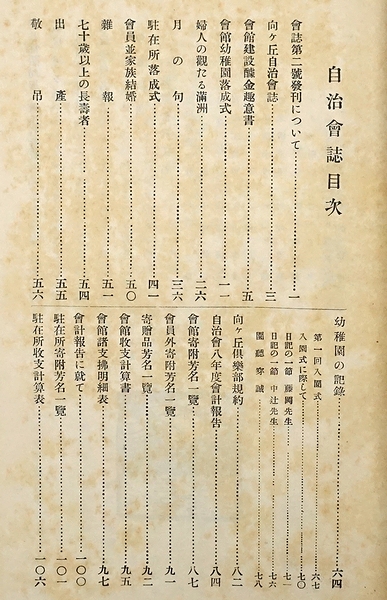 自治會誌目次
會誌第二號發刊について……一
向ヶ丘自治會誌……三
會館建設醵金趣意書……五
會館幼稚園落成式……一一
婦人の觀たる滿洲……二六
月の句……三六
駐在所落成式……四一
會員並家族結婚……五〇
雜報……五一
七十歲以上の長壽者……五四
出產……五五
敬吊……五六
幼稚園の記錄……六四
第一回入園式……六七
入園式に際して……七〇
日記の一節 藤岡先生……七一
日記の一節 中辻先生……七六
園聽穿誠……七八
向ヶ丘俱樂部規約……八二
自治會八年度會計報告……八四
會館寄附芳名一覽……八七
會員外寄附芳名一覽……九一
寄贈品芳名一覽……九二
會館收支計算書……九五
會館諸支拂明細表……九七
會計報告に就て……一〇〇
駐在所寄附芳名一覽……一〇一
駐在所收支計算表……一〇六